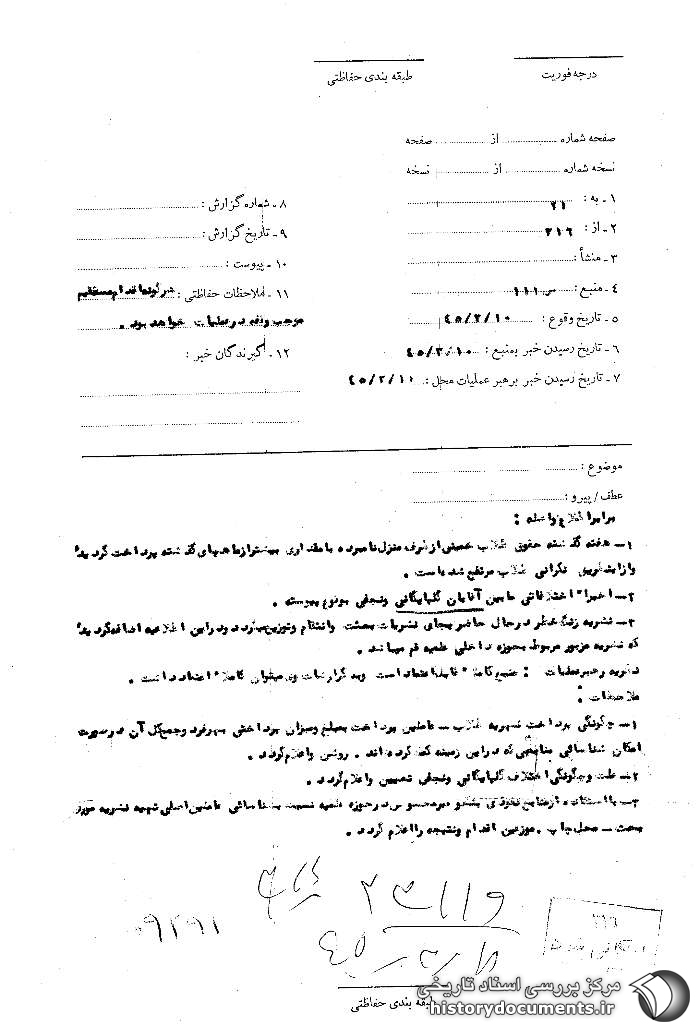 درجه فوریت
طبقه بندی حفاظتی
صفحه شماره از صفحه
نسخه شماره از نسخه
۱ـ به : ۲۱
۲ـ از : ۳۱۶
۳ـ منشأ :
۴ـ منبع : س ۱۱۱
۵ـ تاریخ وقوع : ۴۵/۲/۱۰
۶ـ تاریخ رسیدن خبر بمنبع : ۴۵/۲/۱۰
۷ـ تاریخ رسیدن خبر برهبر عملیات محل : ۴۵/۲/۱۰
۸ـ شماره گزارش :
۹ـ تاریخ گزارش :
۱۰ـ پیوست :
۱۱ـ ملاحظات حفاظتی : هرگونه اقدام مستقیم
موجب وقفه در عملیات خواهد بود .
۱۲ـ گیرندگان خبر :
موضوع :
عطف/پیرو :
برابر اطلاع واصله :
۱ـ هفته گذشته حقوق طلاب خمینی از طرف منزل نامبرده با مقداری بیشتر از ماههای گذشته پرداخت گردیده
و از این طریق نگرانی طلاب مرتفع شده است .
۲ـ اخیرا" اختلافاتی مابین آقایان گلپایگانی ونجفی بوقوع پیوسته .
۳ـ نشریه زنگ خطر در حال حاضر بجای نشریات بعثت وانتقام وتوزیع میگردد ودر این اطلاعیه اضافه گردیده
که نشریه مزبور مربوط بحوزه داخلی علمیه قم میباشد .
نظریه رهبر عملیات : منبع کاملا" قابل اعتماد است وبه گزارشات وی میتوان کاملا" اعتماد داشت .
ملاحظات :
۱ـ چگونگی پرداخت شهریه طلاب ـ عاملین پرداخت بمبلغ ومیزان پرداختی بهر فرد وجمع کل آن در صورت
امکان شناسائی منابعی که در این زمینه کمک کرده اند . روشن واعلام گردد .
۲ـ علت وچگونگی اختلاف گلپایگانی ونجفی تعیین واعلام گردد .
۳ـ با استفاده از منابع نفوذی در حوزه علمیه نسبت بشناسائی عاملین اصلی تهیه نشریه مورد
بحث ـ محل چاپ . موزعین اقدام ونتیجه را اعلام گردد .
۰۹۲۹۱
۳۱۶
طبقه بندی حفاظتی
مرکز بررسی اسناد تاریخی
historydocuments.ir